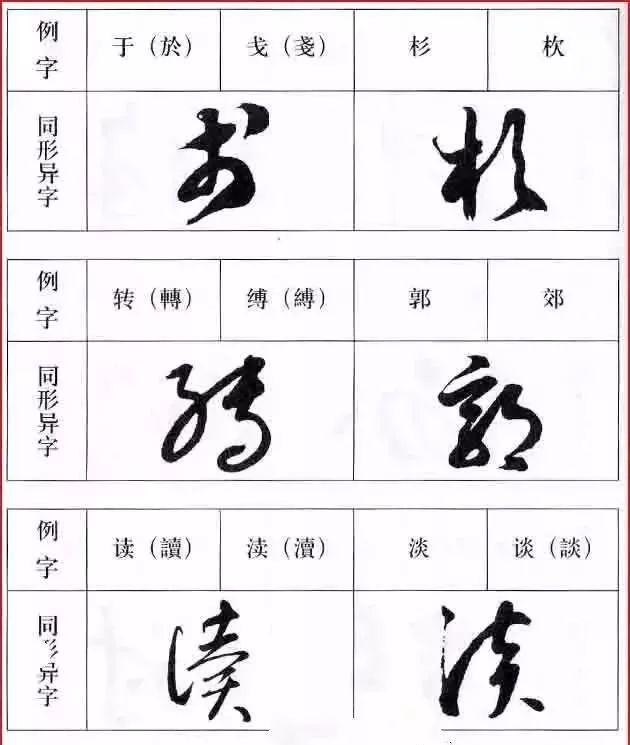 例字 于（於） 戋（戔） 杉 杴
同形异字
例字 转（轉） 缚（縛） 郭 郊
同形异字
例字 读（讀） 渎（瀆） 淡 谈（談）
同形异字